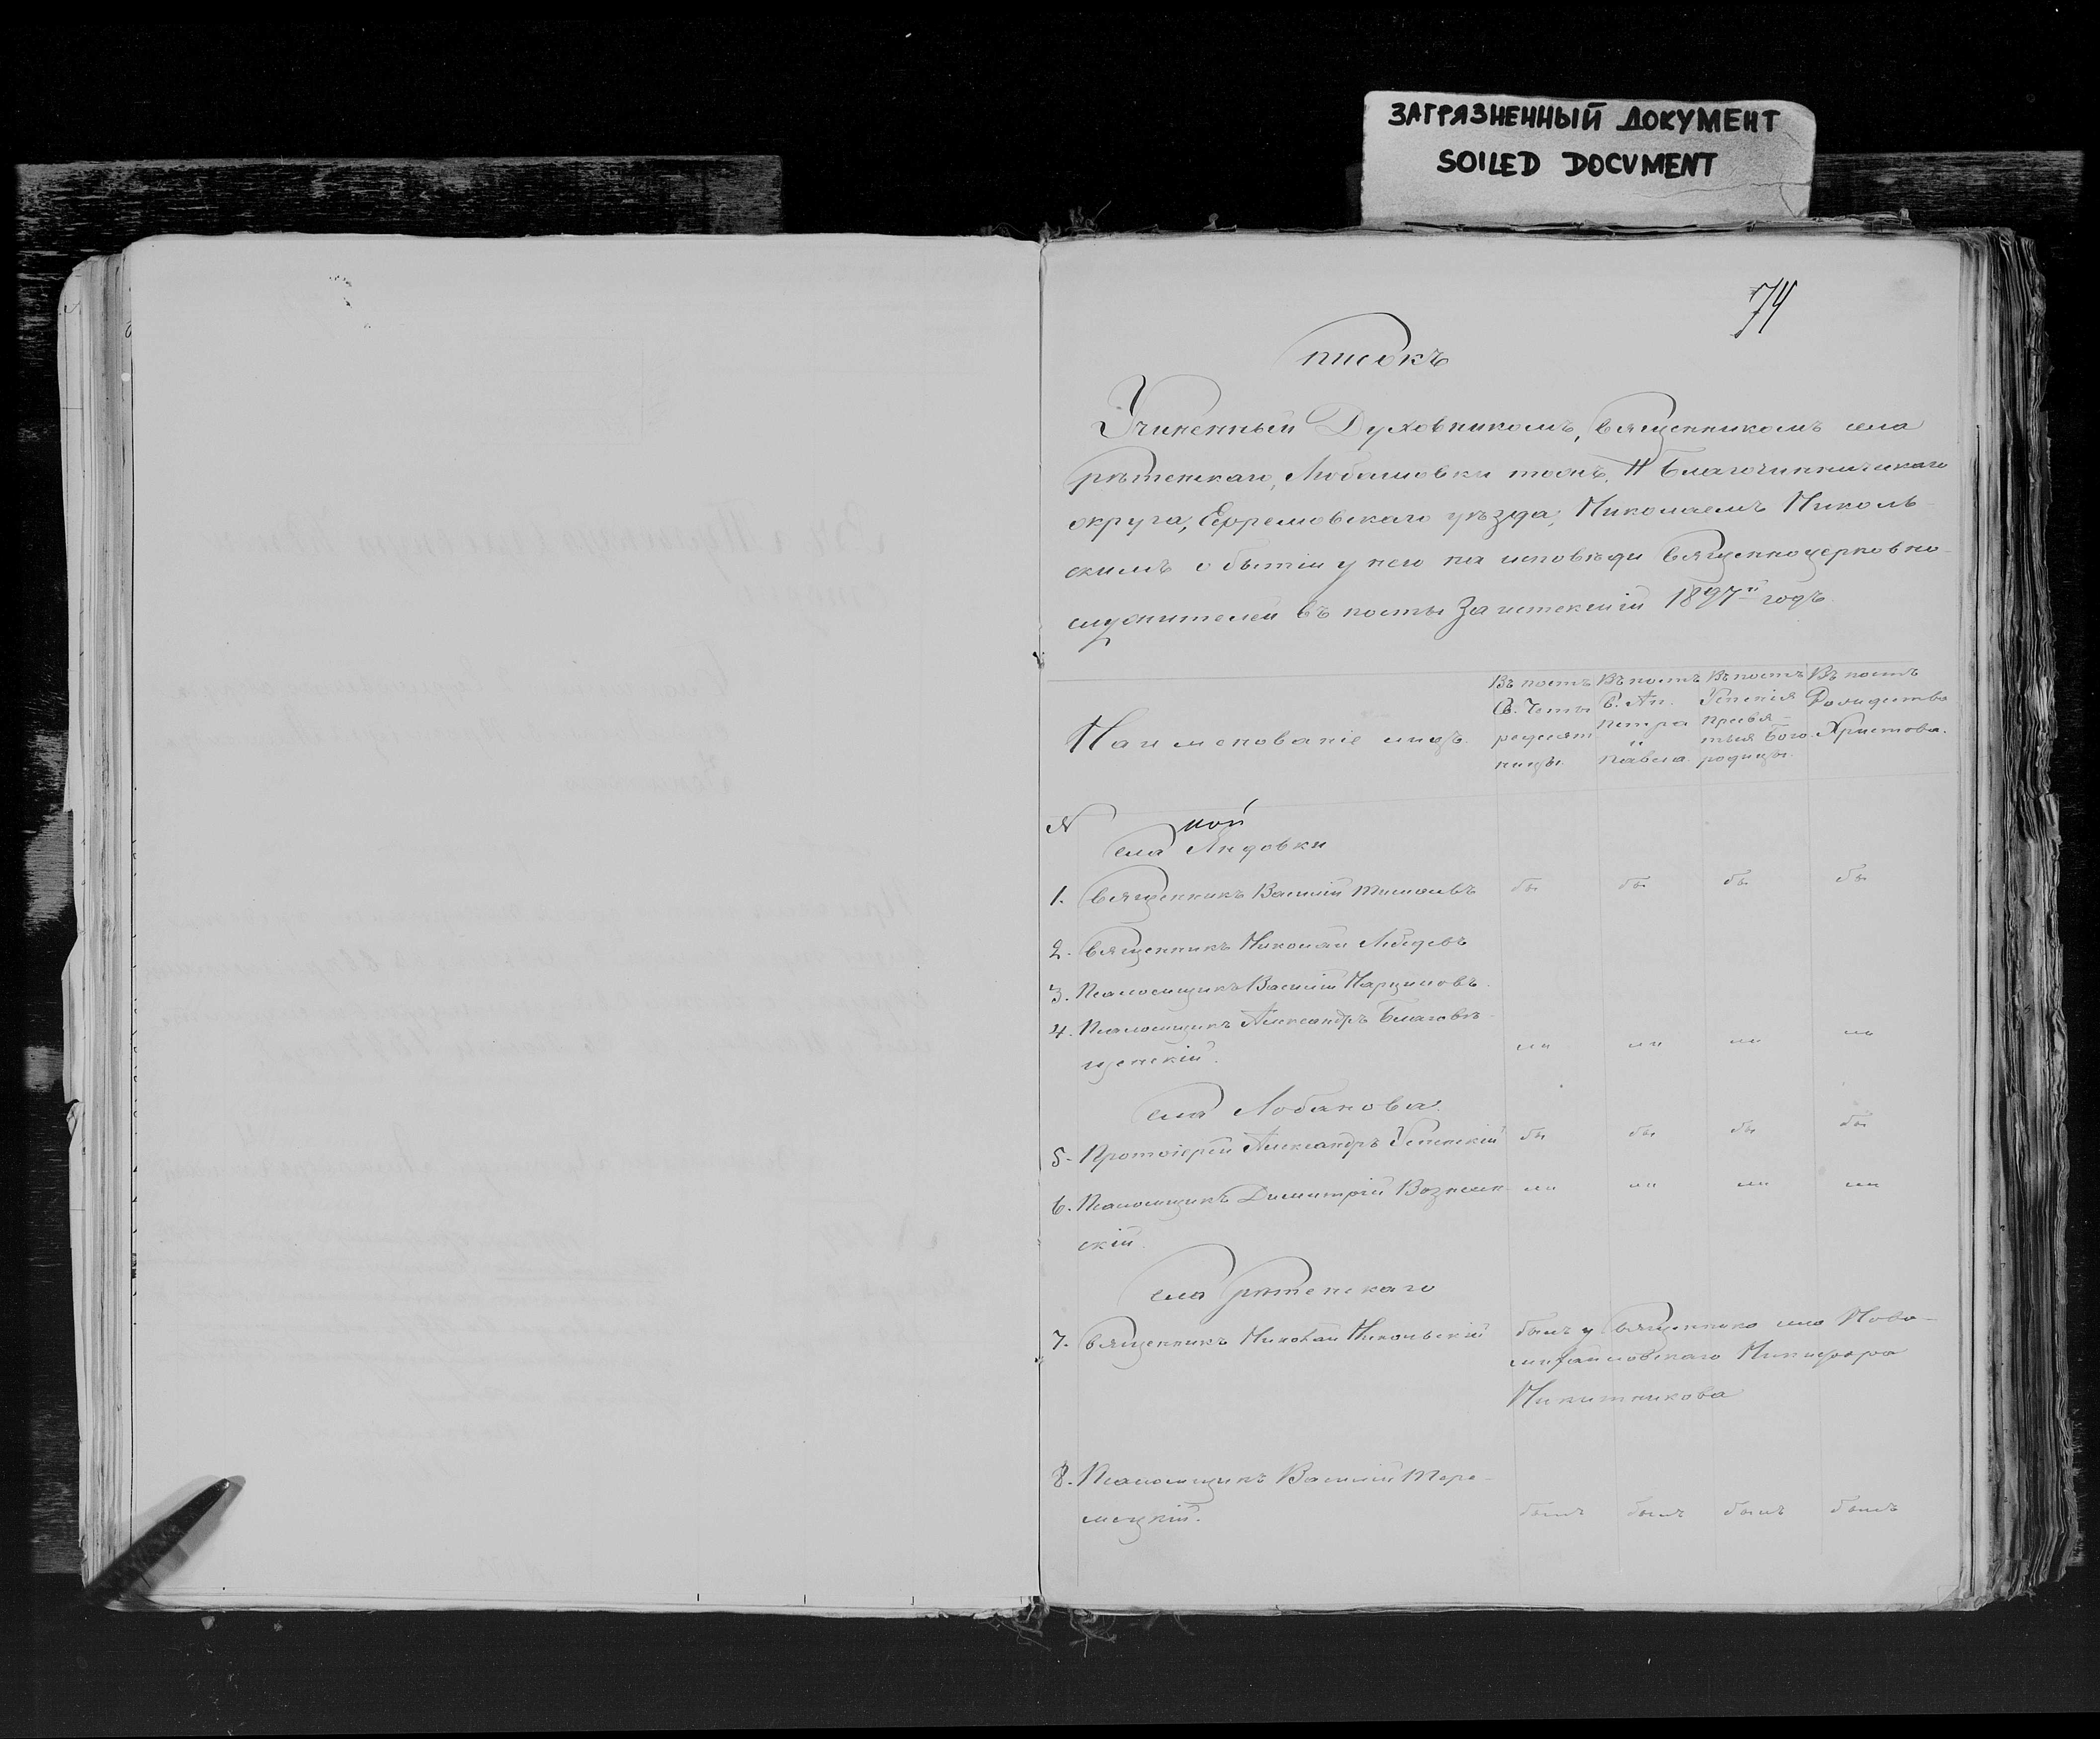 ЗАГРЯЗНЕННЫЙ ДОКУМЕНТ
SOILED DOCUMENT
74
Списокъ
Учиненный Духовникомъ, Священникомъ села
Срѣтенскаго, Любашовки тожъ, II Благочинническаго
округа, Ефремовскаго уѣзда, Николаемъ Николь-
скимъ о бытіи у него на исповѣди Священноцерковно-
служителей въ посты за истекшій 1897й годъ.
Наименованіе лицъ.
Въ постъ Св. Четыредесятницы.
Въ постъ Св. Ап. Петра и Павла.
Въ постъ Успенія Пресвятыя Богородицы.
Въ постъ Рождества Христова.
№
Села Яндовки
1. Священникъ Василій бы бы бы бы
2. Священникъ Николай Лебедевъ
3. Псаломщикъ Василій Нарциссовъ.
4. Псаломщикъ Александръ Благовѣ-
щенскій. ли ли ли ли
Села Лобанова.
5. Протоіерей Александръ Успенскій бы бы бы бы
6. Псаломщикъ Димитрій Вознесен- ли ли ли ли
скій.
Села Срѣтенскаго
7. Священникъ Николай Никольскій былъ у Священника села Ново-
михайловскаго Никифора
Никитникова
8. Псаломщикъ Василій
былъ былъ былъ былъ